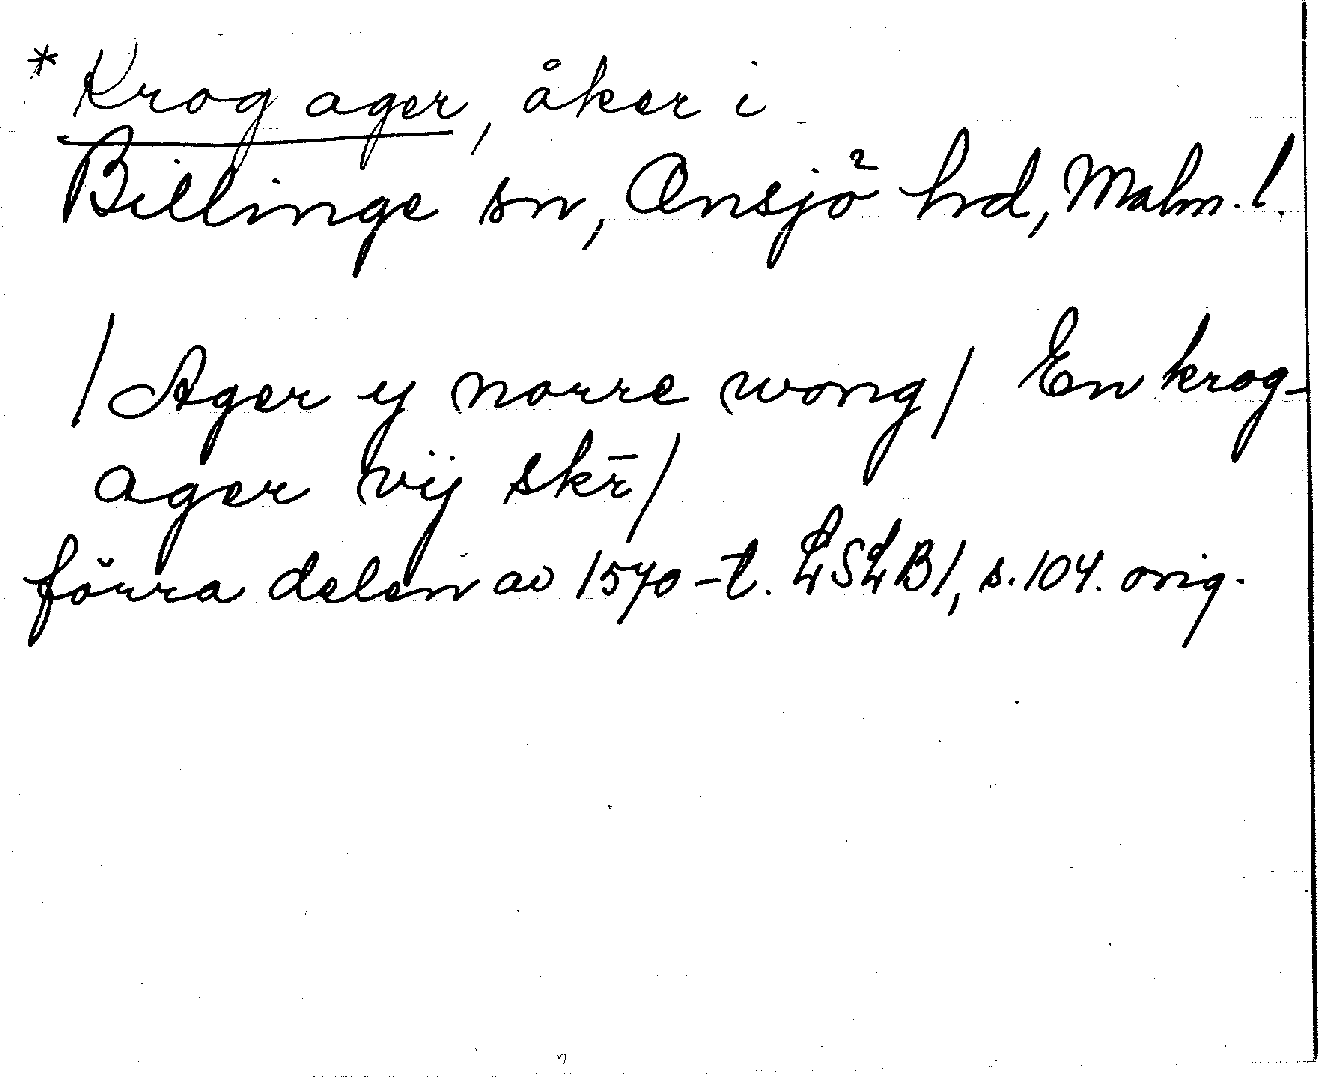 * Krog ager, åker i
Billinge sn, Onsjö hd, Malm. l.
/Ager y norre wong/ En krog-
ager vij skr̄/
förra delen av 1570-t. LSLB1, s. 104. orig.